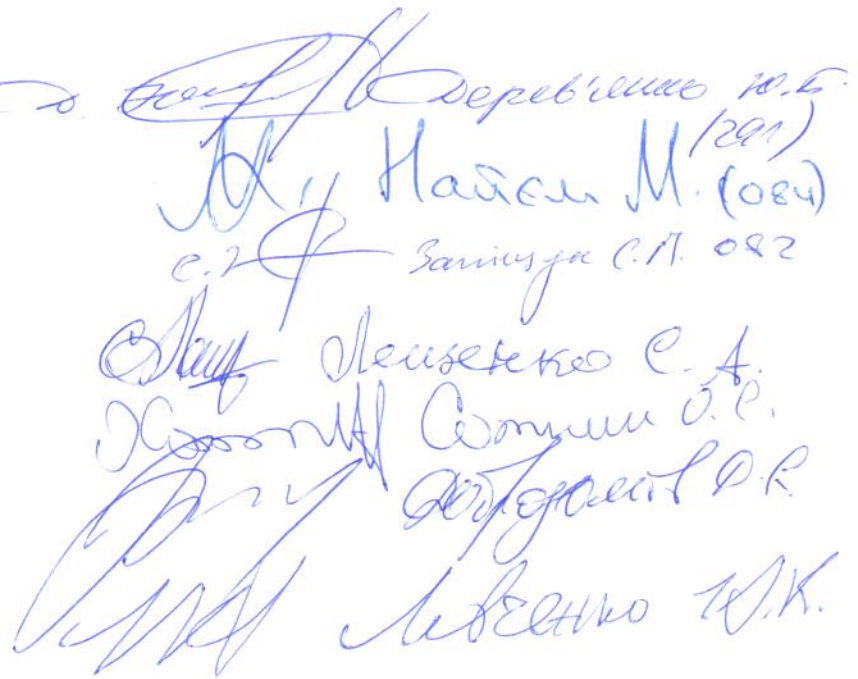 Дерев'янко Ю.Б.
(291)
Найєм М. (084)
Заліщук С.П. 082
Лещенко С. А.
Сотник О. С.
Добродомов Д. Є.
Левченко Ю.К.